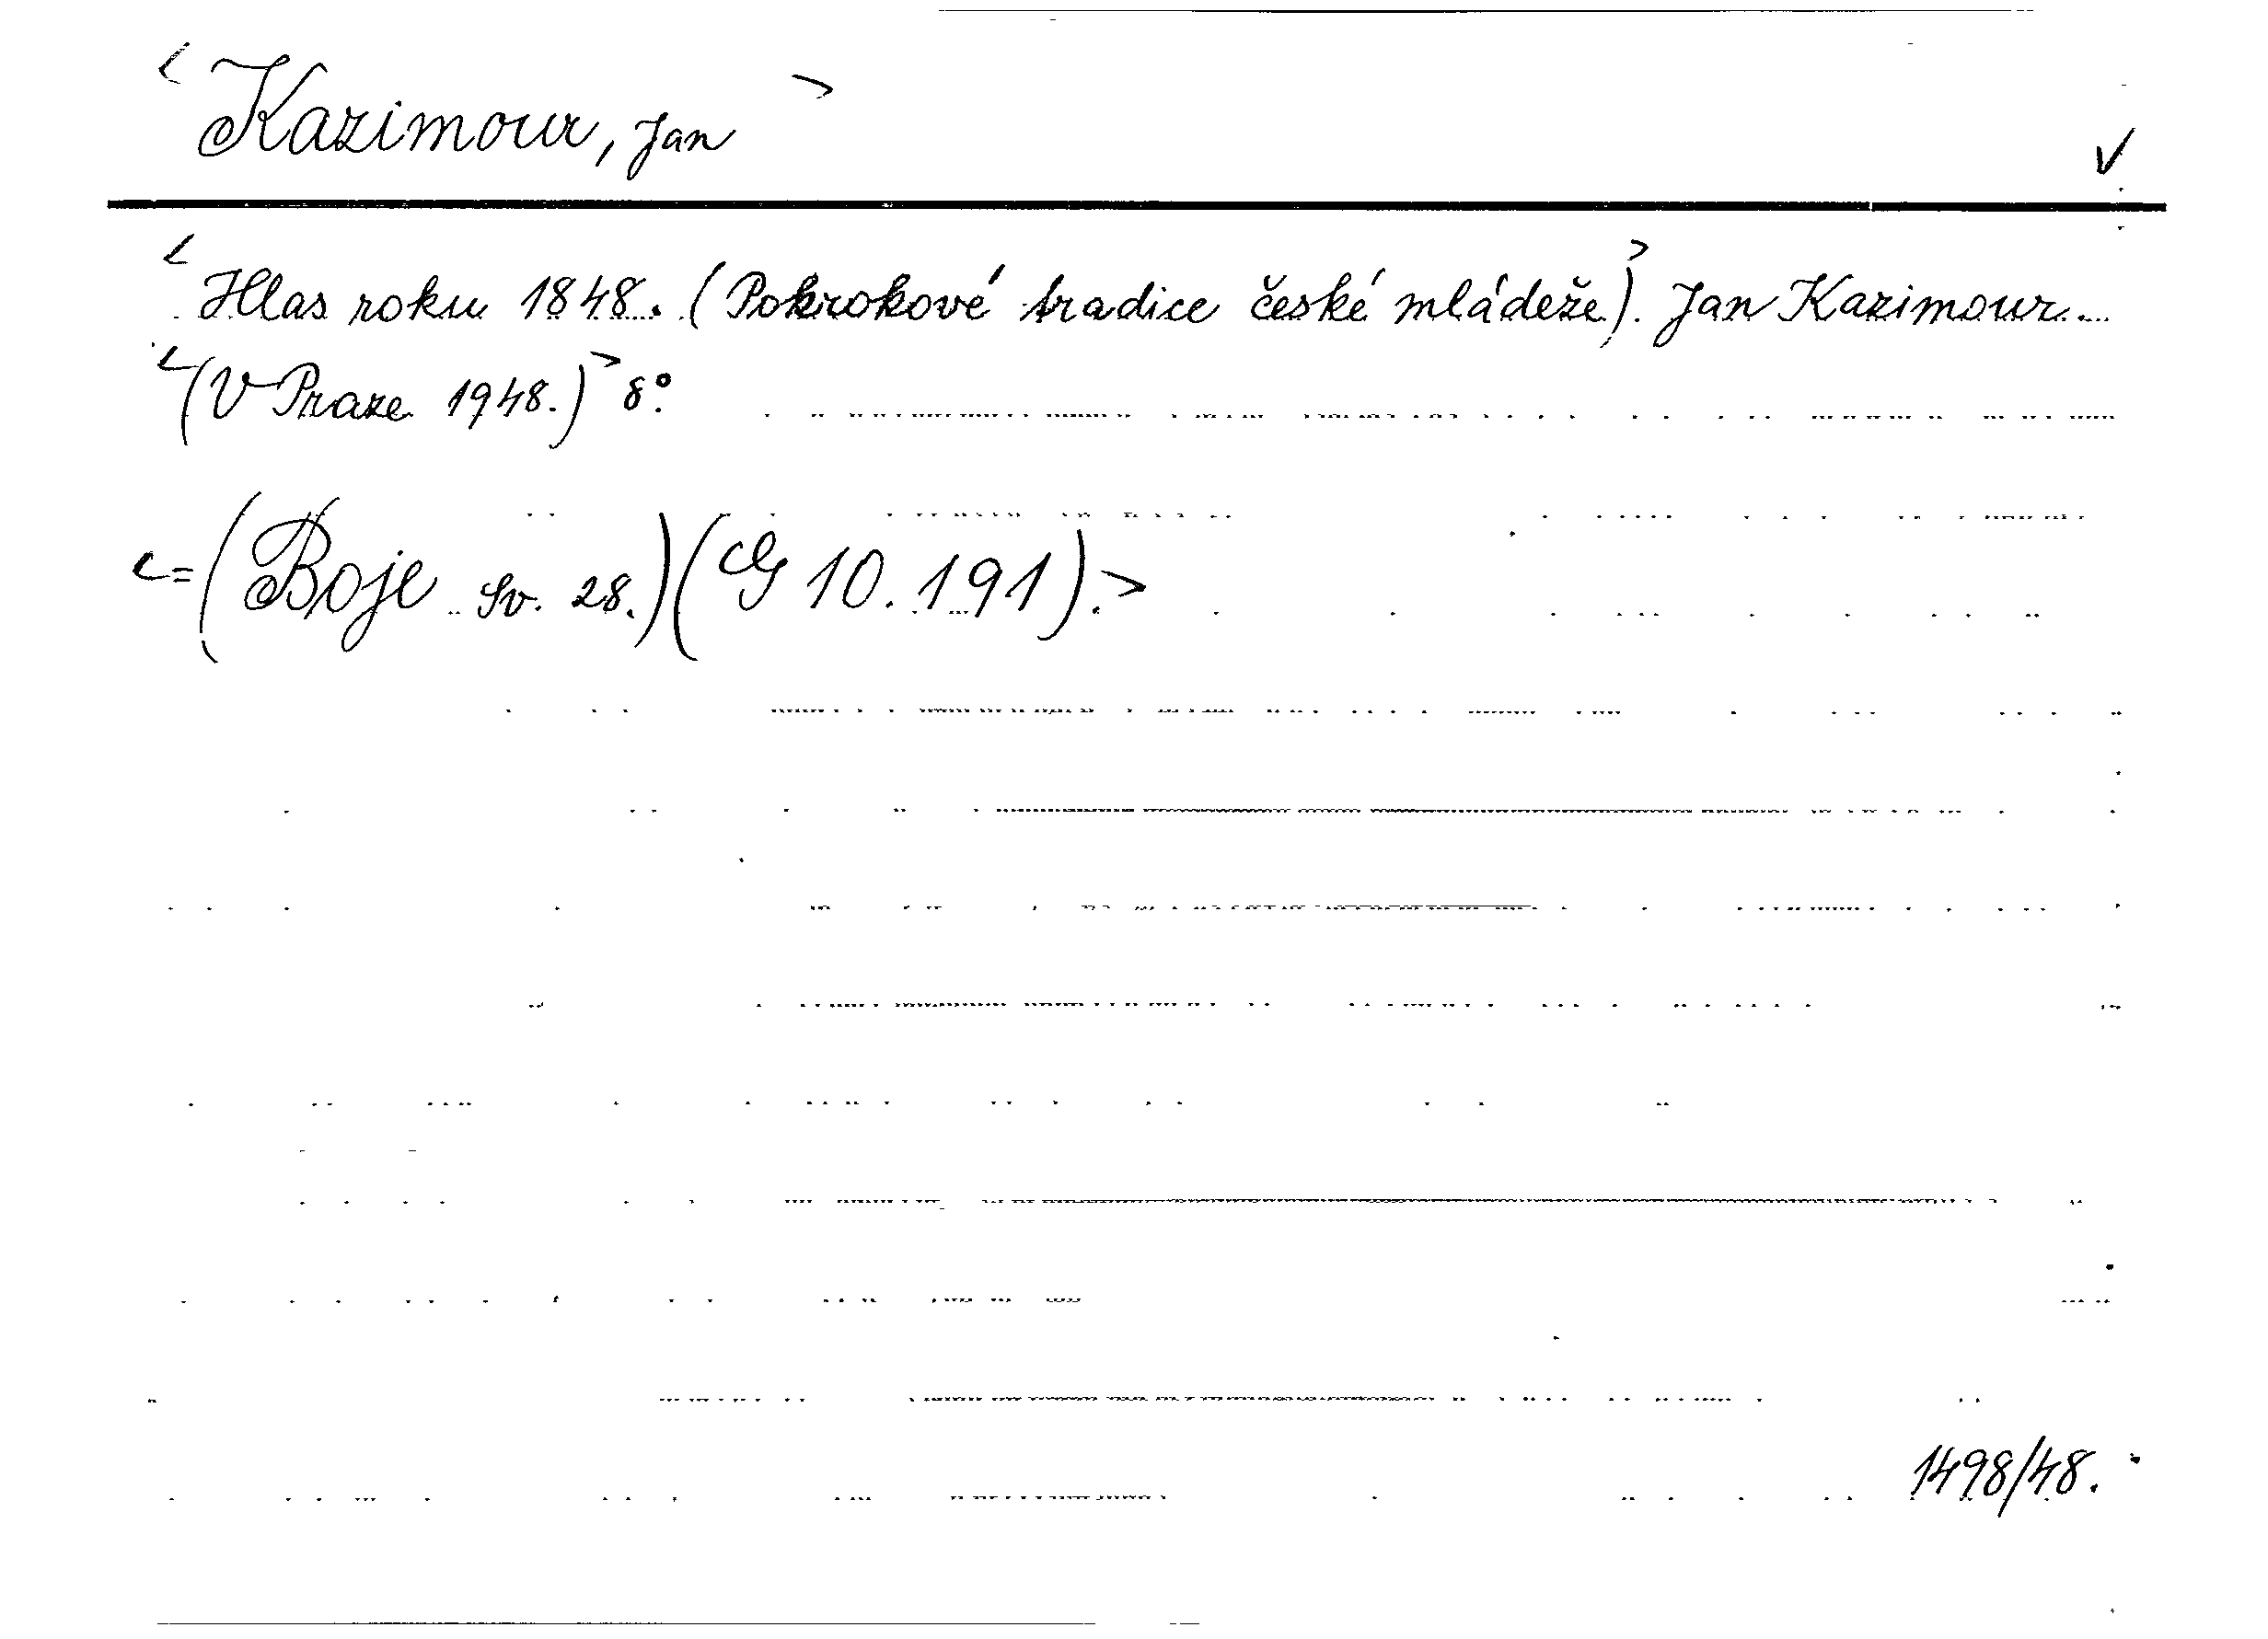 < Kazimour, Jan > √
< Hlas roku 1848. (Pokrokové tradice české mládeže).> Jan Kazimour...
< (V Praze 1948.) > 8°.
<= (Boje sv. 28.) (G 10.191). >
1498/48.